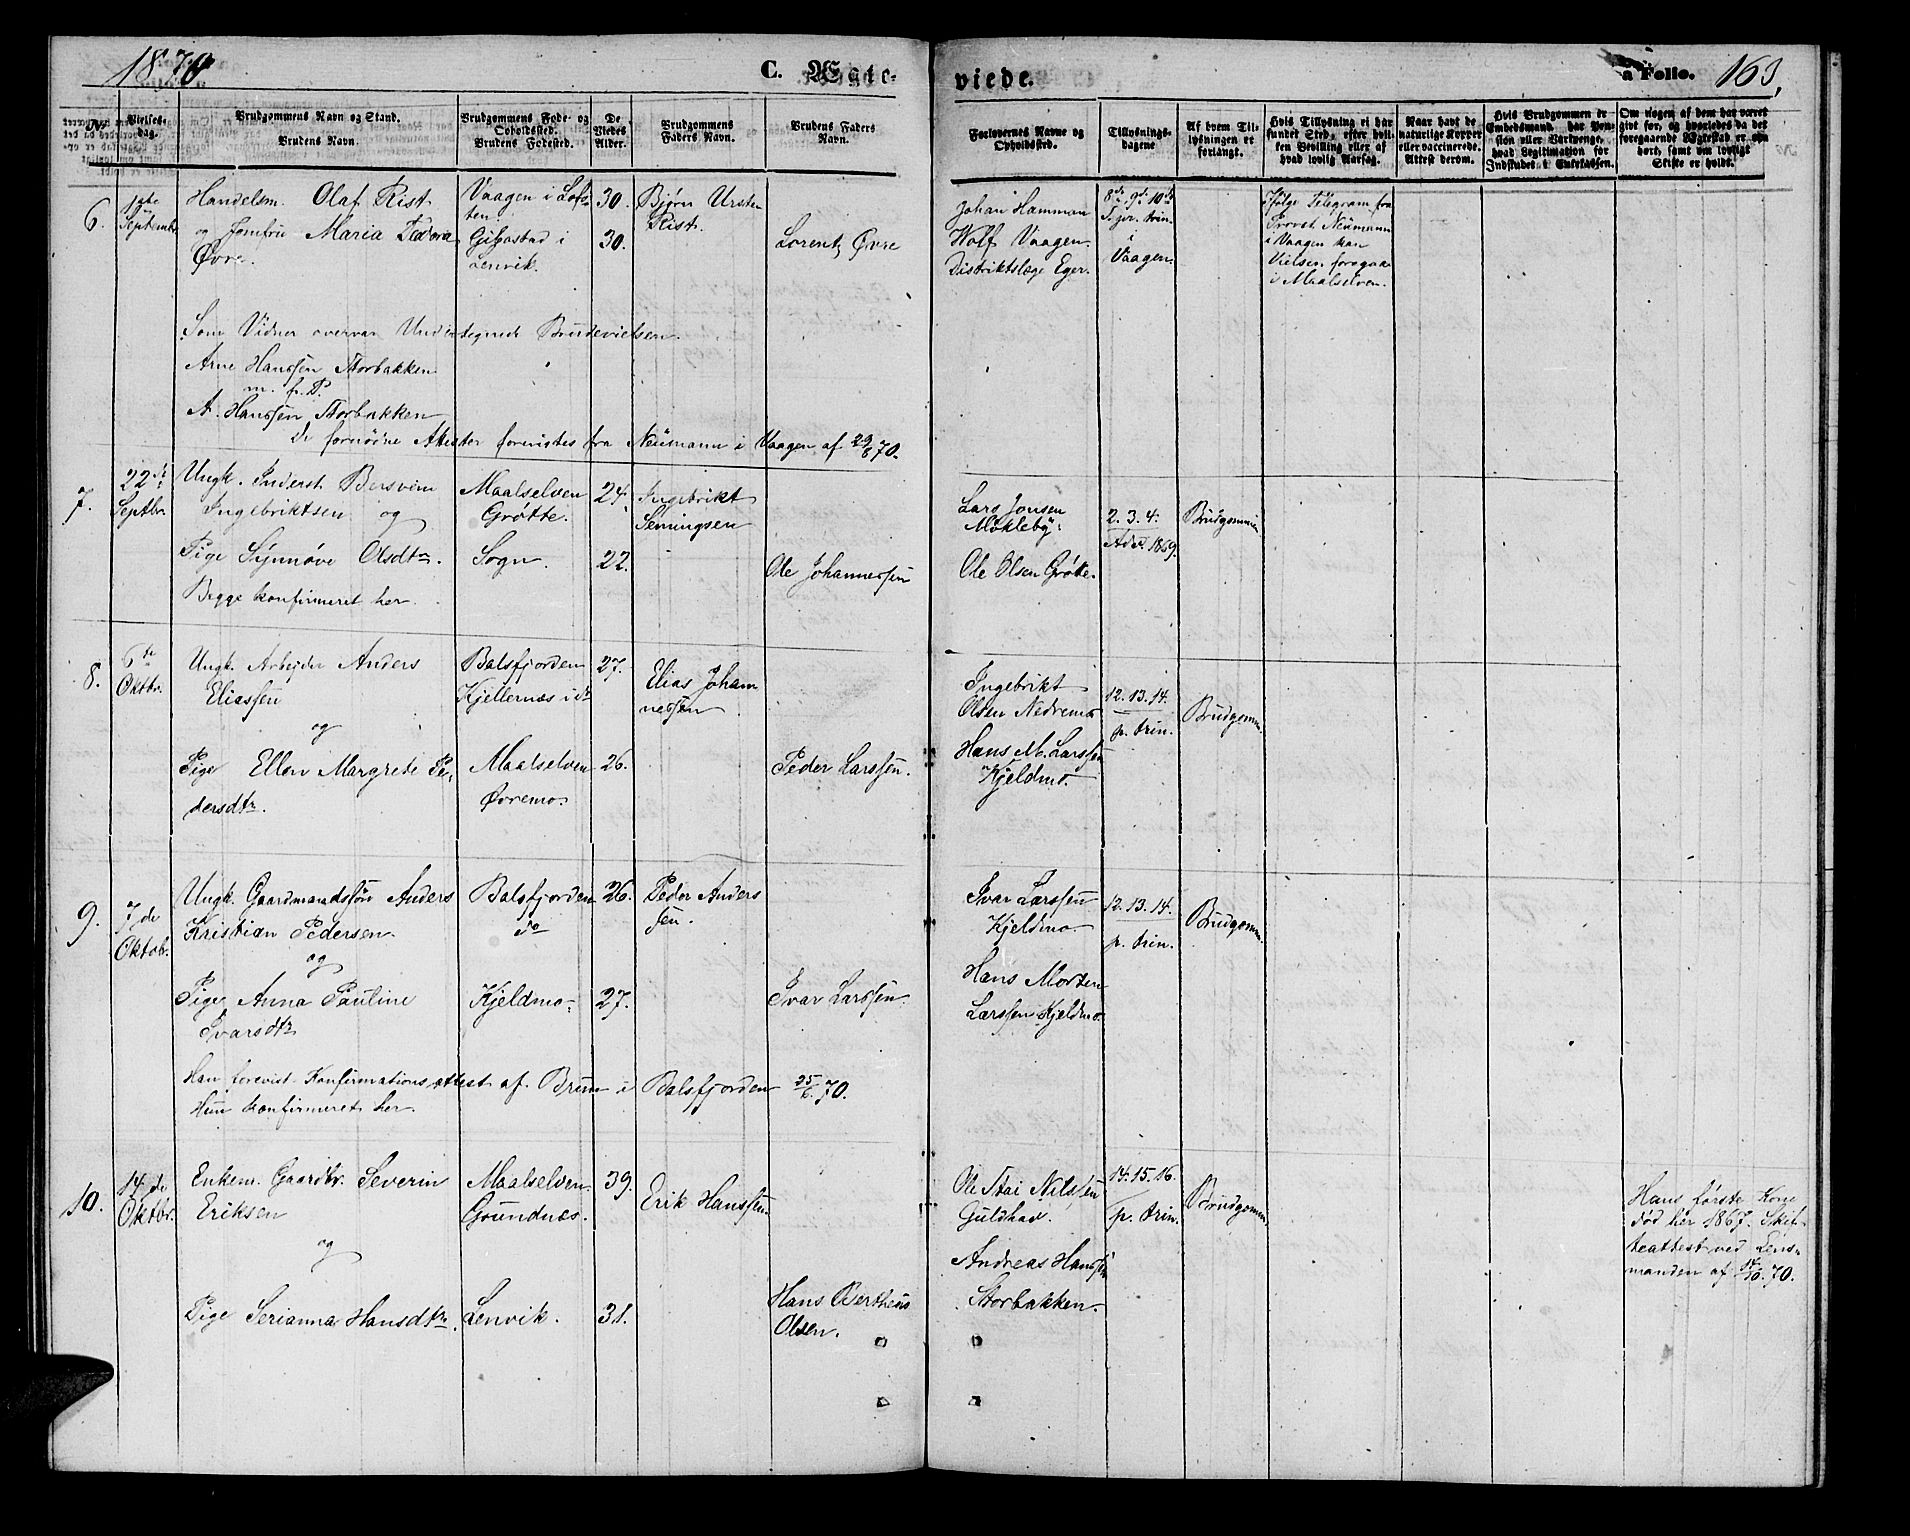 1870
C. Egte-
viede.
a Folio. 163,
No
Vielses-
dag.
Brudgommens Navn og Stand.
Brudens Navn.
Brudgommens Føde- og
Opholdssted.
Brudens Fødested.
De
Viedes
Alder.
Brudgommens
Faders Navn.
Brudens Faders
Navn.
Forlovernes Navne og
Opholdssted.
Tillysnings-
dagene
Af hvem Til-
lysningen er
forlangt.
Hvis Tillysning ei har
fundet Sted, efter hvil-
ken Bevilling eller af
hvad lovlig Aarsag.
Naar havt de
naturlige Kopper
eller vaccinerede.
Attest derom.
Hvis Brudgommen er
Embedsmand, har Pen-
sion eller Vartpenge,
hvad Legitimation for
Indskudet i Enkekassen.
Om nogen af dem har været
gift før, og hvorledes da det
foregaaende Egteskab er op-
hørt, samt om lovligt
Skifte er holdt.
6.
1ste
September
Handelsm. Olaf Rist
og Jomfru Maria Pedora
Øvre.
Vaagen i Lofo-
ten.
Gibostad i
Lenvik.
30.
30.
Bjørn Ursten
Rist.
Lorentz Øvre
Johan Hamman
Wolf Vaagen.
Distriktslæge Eger.
8de 9de 10de
S. p. trin.
i
Vaagen.
ifølge Telegram fra
Provst Neumann
i Vaagen kan
Vielsen foregaa
i Maalselven.
Som Vidner overvar Undertegnede Brudevielsen.
Arne Hanssen Storbakken
m. f. P.
A. Hanssen Storbakken
De fornødne Attester forevistes fra Neumann i Vaagen af 29/8 70.
7.
22de
Septbr.
Ungk. Inderst Bersvein
Ingebriktsen og
Pige Synnøve Olsdtr.
Begge konfirmeret her.
Maalselven
Grøtte.
Sogn.
24.
22.
Ingebrikt
Semingsen
Ole Johannessen
Lars Jonsen
Mökleby.
Ole Olsen Grøtte.
2. 3. 4.
Adv. 1869.
Brudgommen
8.
6te
Oktbr.
Ungk. Arbejder Anders
Eliassen
og
Pige Ellen Margrete Pe-
dersdtr.
Balsfjorden
Kjellernæs i do
Maalselven
Øvremo.
27.
26.
Elias Johan
nessen
Peder Larssen.
Ingebrikt
Olsen Nedremo
Hans M. Larssen
Kjeldmo.
12. 13. 14.
p. trin.
Brudgomm.
9.
7de
Oktob.
Ungk. Gaardmandssøn Anders
Kristian Pedersen.
og
Pige Anna Pauline
Ivarsdtr
Balsfjorden
do
Kjeldmo.
26.
27.
Peder Anders
sen.
Ivar Larssen.
Ivar Larssen
Kjeldmo.
Hans Morten
Larssen Kjeldmo.
12. 13. 14.
p. trin.
Brudgomm.
Han forevist Konfirmationsattest af Brun i Balsfjorden 25/6 70.
Hun konfirmeret her.
10.
14de
Oktbr.
Enkem. Gaardbr. Severin
Eriksen
og
Pige Serianna Hansdtr.
Maalselven
Grundnæs.
Lenvik.
39.
31.
Erik Hanssen.
Hans Bertheus
Olsen.
Ole Stai Nilssen
Guldhav.
Andreas Hanssen
Storbakken.
14. 15. 16.
p. trin.
Brudgommen
Hans første Kone
død her 1867. Skif-
teattest ved Lens-
manden af 14/10 70.